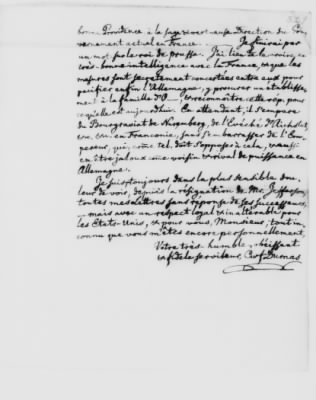 bonne Providence à la sage & vertueuse Direction du Gou-
vernement actuel en France. Je finirai par
un mot sur le roi de prusse. J'ai lieu de le croire, en
très-bonne intelligence avec la France, & que les
mesures sont secretement concertées entre eux pour
pacifier enfin l'Allemagne, y procurer un établisse-
ment à la famille d'O—, & reconnoître cette rep. pour
ce qu'elle est aujourd'hui. En attendant, il s'empare
du Bourgraviat de Nurenberg, de l'Evêché d'Aichstet
&c. &c. en Franconie, sans s'embarrasser de l'Em-
pereur, qui, comme tel, doit s'opposer à cela, & aussi
en être jaloux comme voisin & rival de puissance en
Allemagne.
Je suis toujours dans la plus sensible dou-
leur de voir, depuis la résignation de Mr. Jefferson,
toutes mes Lettres sans réponse de ses successeurs,
mais avec un respect loyal & inaltérable pour
les Etats-Unis, & pour vous, Monsieur, tout in-
connu que vous m'êtes encore personnellement,
Votre très-humble, obéissant
& fidele serviteur, Cwf Dumas